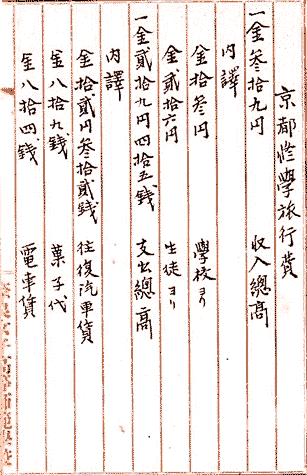 京都修學旅行費
一金叁拾九円 収入總高
内譯
金拾叁円 學校ヨリ
金貳拾六円 生徒ヨリ
一金貳拾九円四拾五銭 支出總高
内譯
金拾貳円叁拾貳銭 往復汽車賃
金八拾九銭 菓子代
金八拾四銭 電車賃